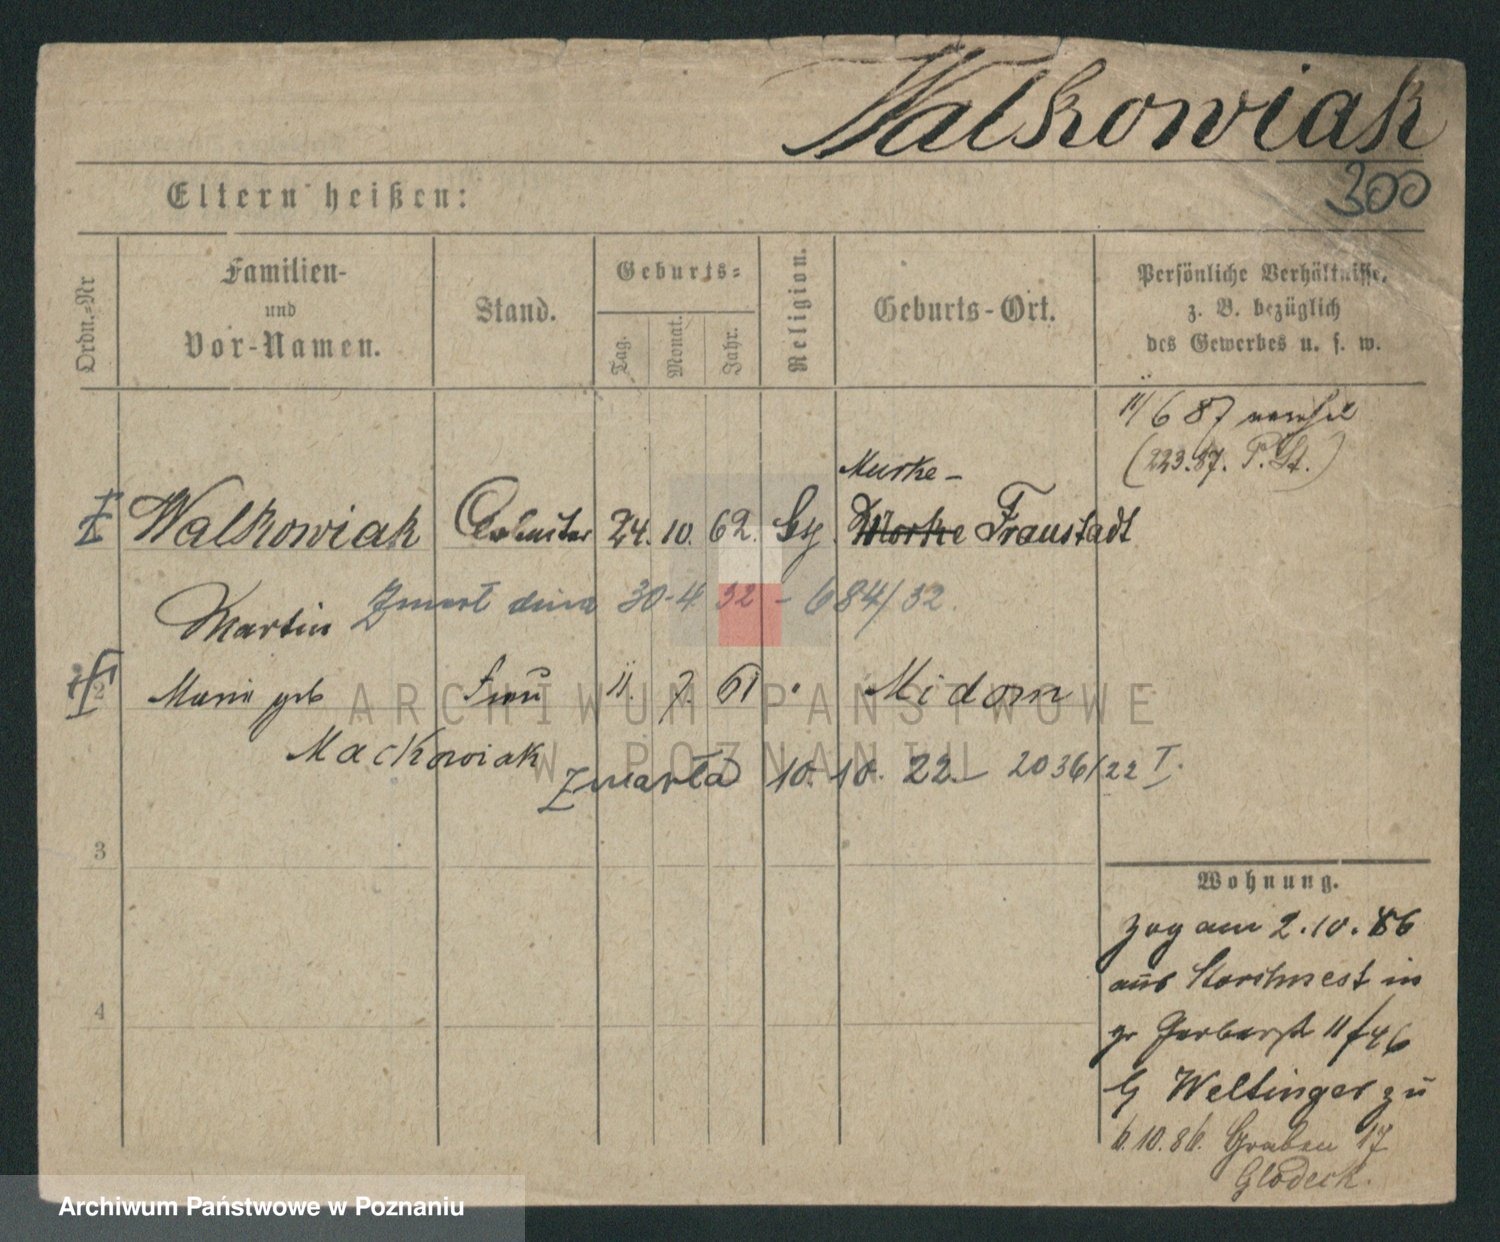 Walkowiak
300
Eltern heißen:
Ordn.-Nr
Familien-
und
Vor-Namen.
Stand.
Geburts-
Tag.
Monat.
Jahr.
Religion.
Geburts-Ort.
Persönliche Verhältnisse,
z. B. bezüglich
des Gewerbes u. s. w.
11/6 87
(223.87. P. St.)
Murke-
Walkowiak Arbeiter 24. 10. 62. Murke Fraustadt
Martin Zmarł dnia 30-4 32 - 684/32.
2 Marie geb Frau 11. 7. 61 Midorn
Mackowiak
Zmarła 10. 10. 22. - 2036/22 I.
3
4
Wohnung.
Zog am 2.10.86
aus Storchnest in
gr Gerberstr 11/46
b/ Weltinger zu
6.10.86. Graben 17
Glodeck.
ARCHIWUM PAŃSTWOWE
W POZNANIU
Archiwum Państwowe w Poznaniu